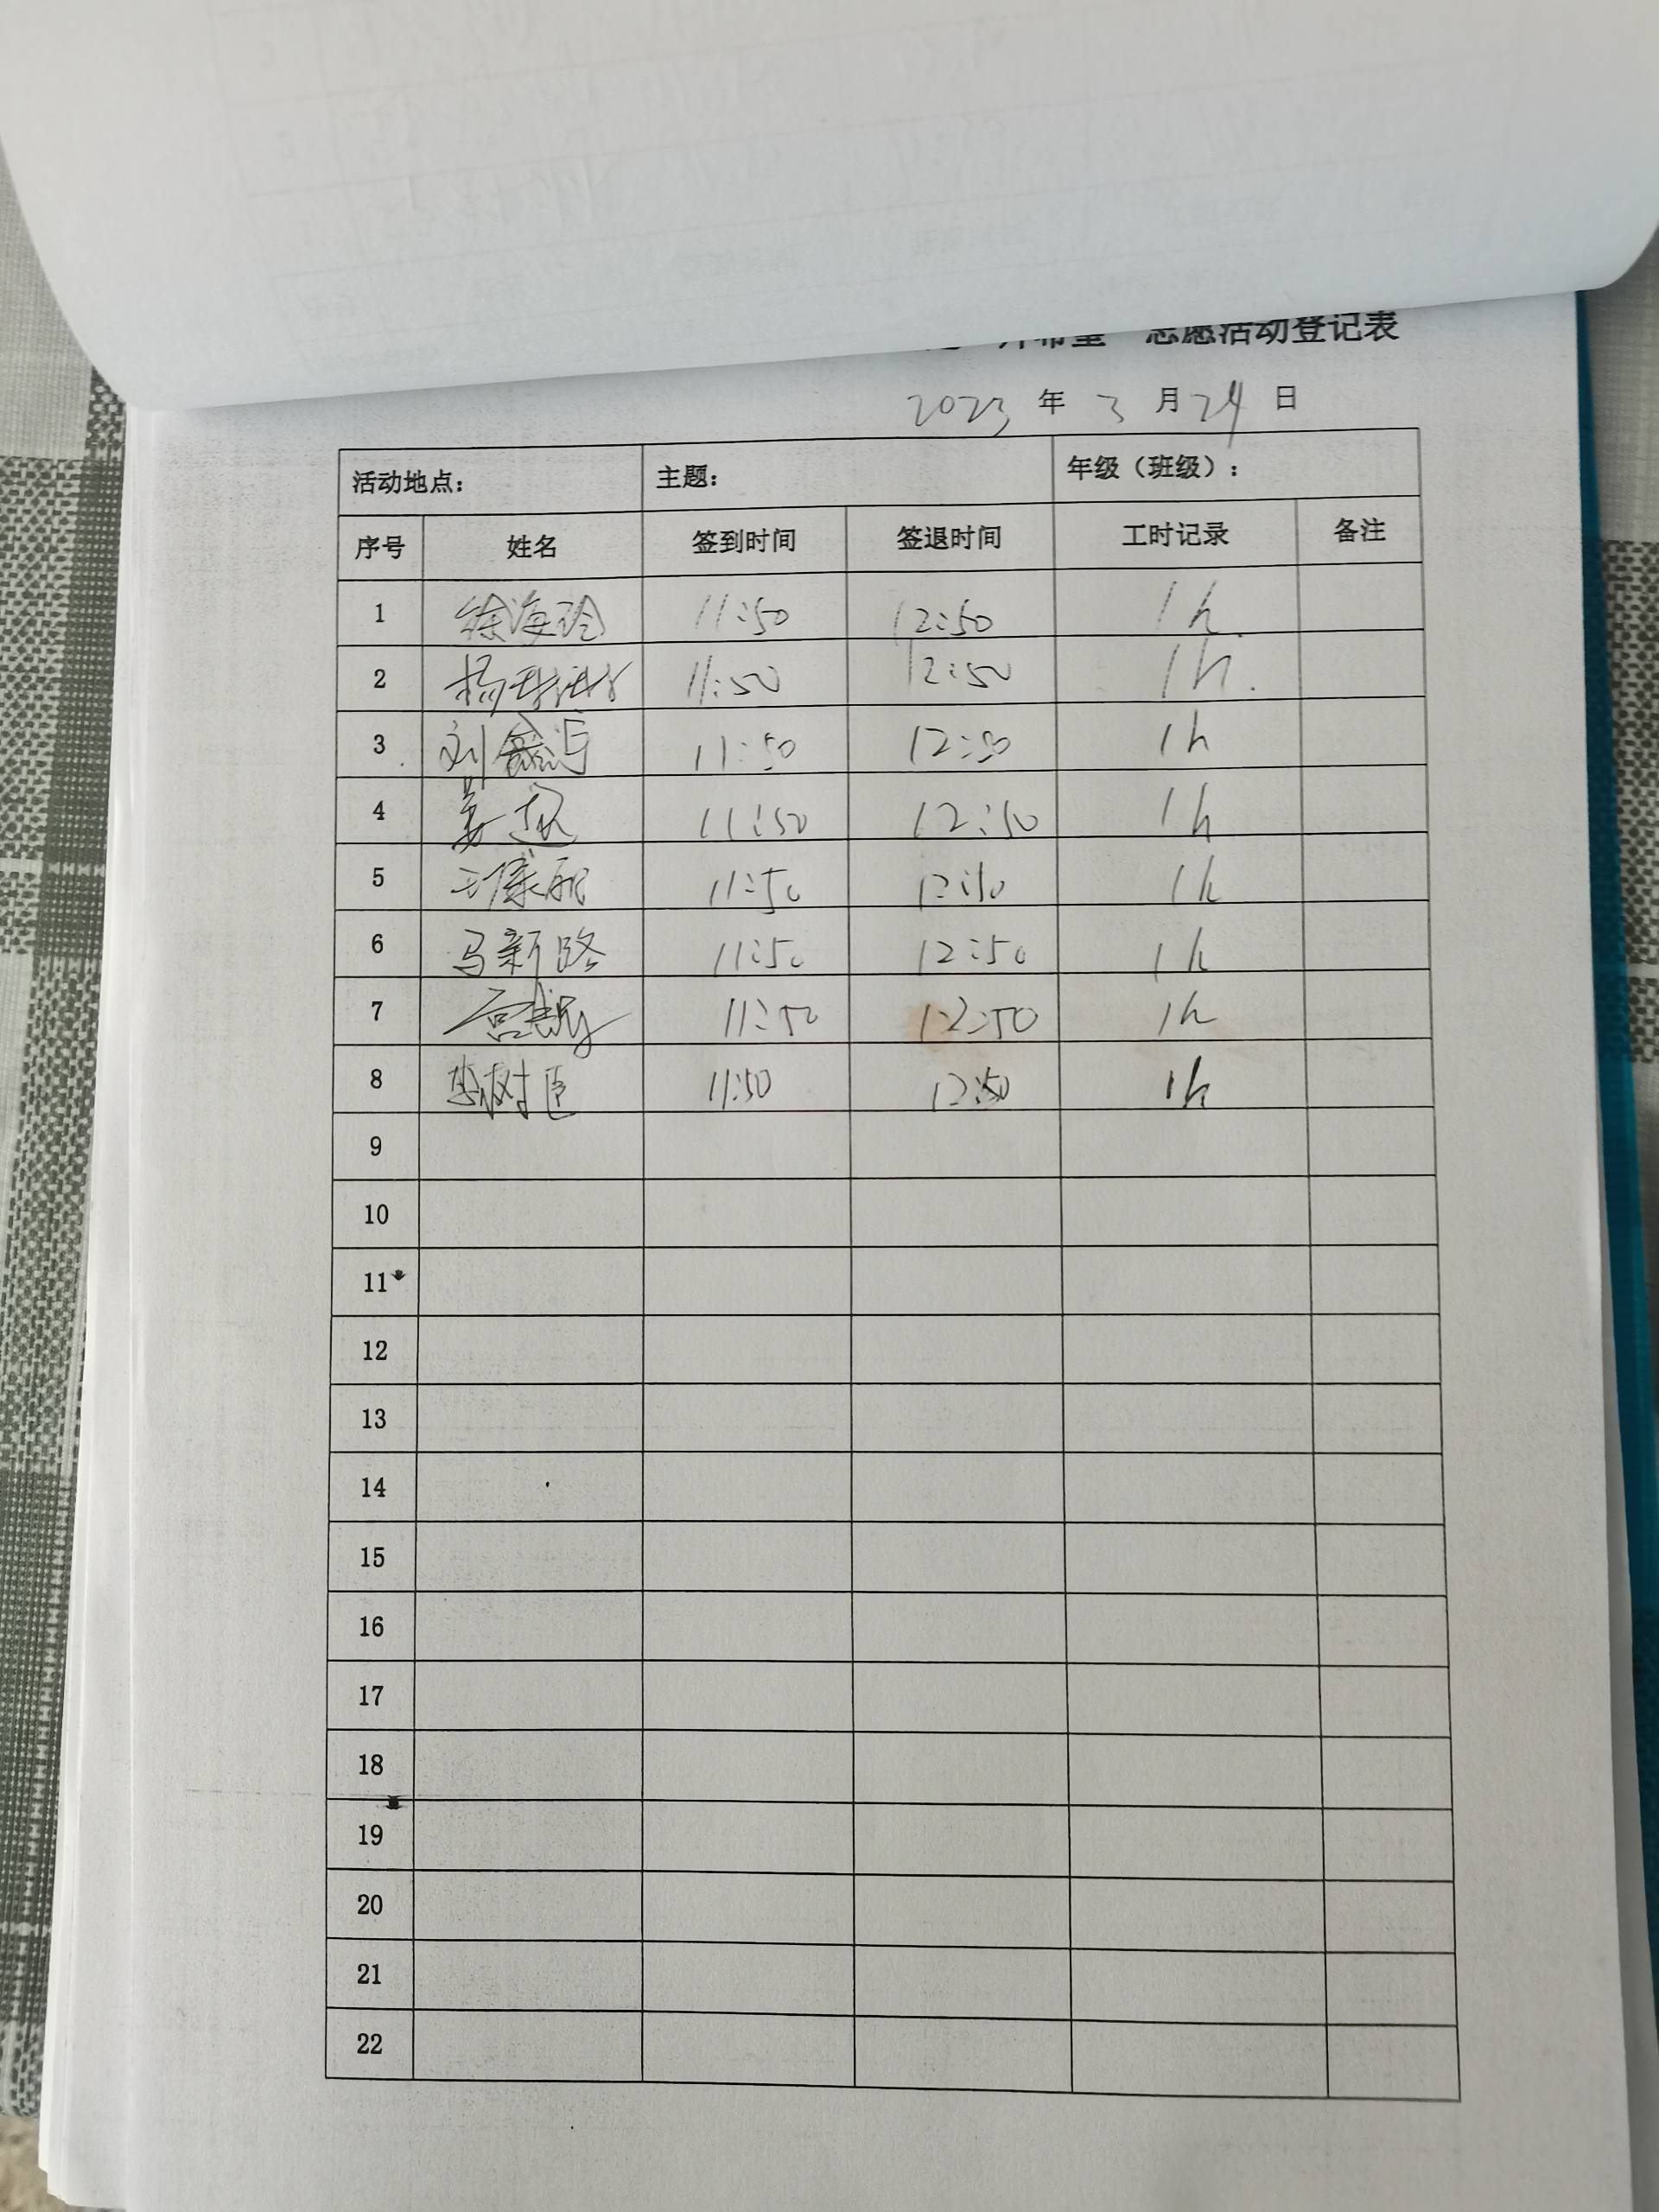 志愿活动登记表
2023 年 3 月 24 日
活动地点： 主题： 年级（班级）：
序号 姓名 签到时间 签退时间 工时记录 备注
1 徐海玲 11:50 12:50 1h.
2 11:50 12:50 1h.
3 11:50 12:50 1h
4 姜超 11:50 12:50 1h
5 11:50 12:50 1h
6 马新路 11:50 12:50 1h
7 11:50 12:50 1h
8 李树臣 11:50 12:50 1h
9
10
11
12
13
14
15
16
17
18
19
20
21
22